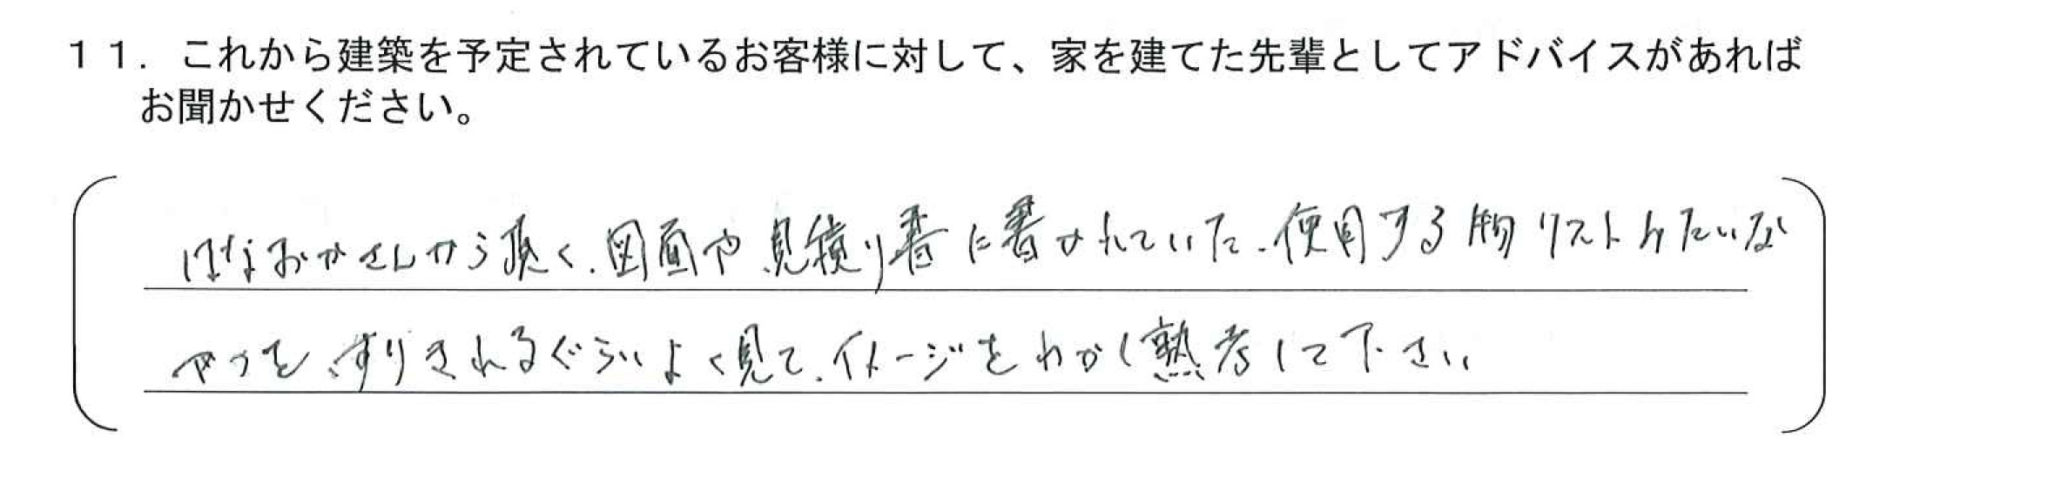 １１．これから建築を予定されているお客様に対して、家を建てた先輩としてアドバイスがあれば
お聞かせください。
はなおかさんから頂く、図面や見積り書に書かれていた、使用する物リストみたいな
やつを、すりきれるぐらいよく見て、イメージをわかし熟考して下さい